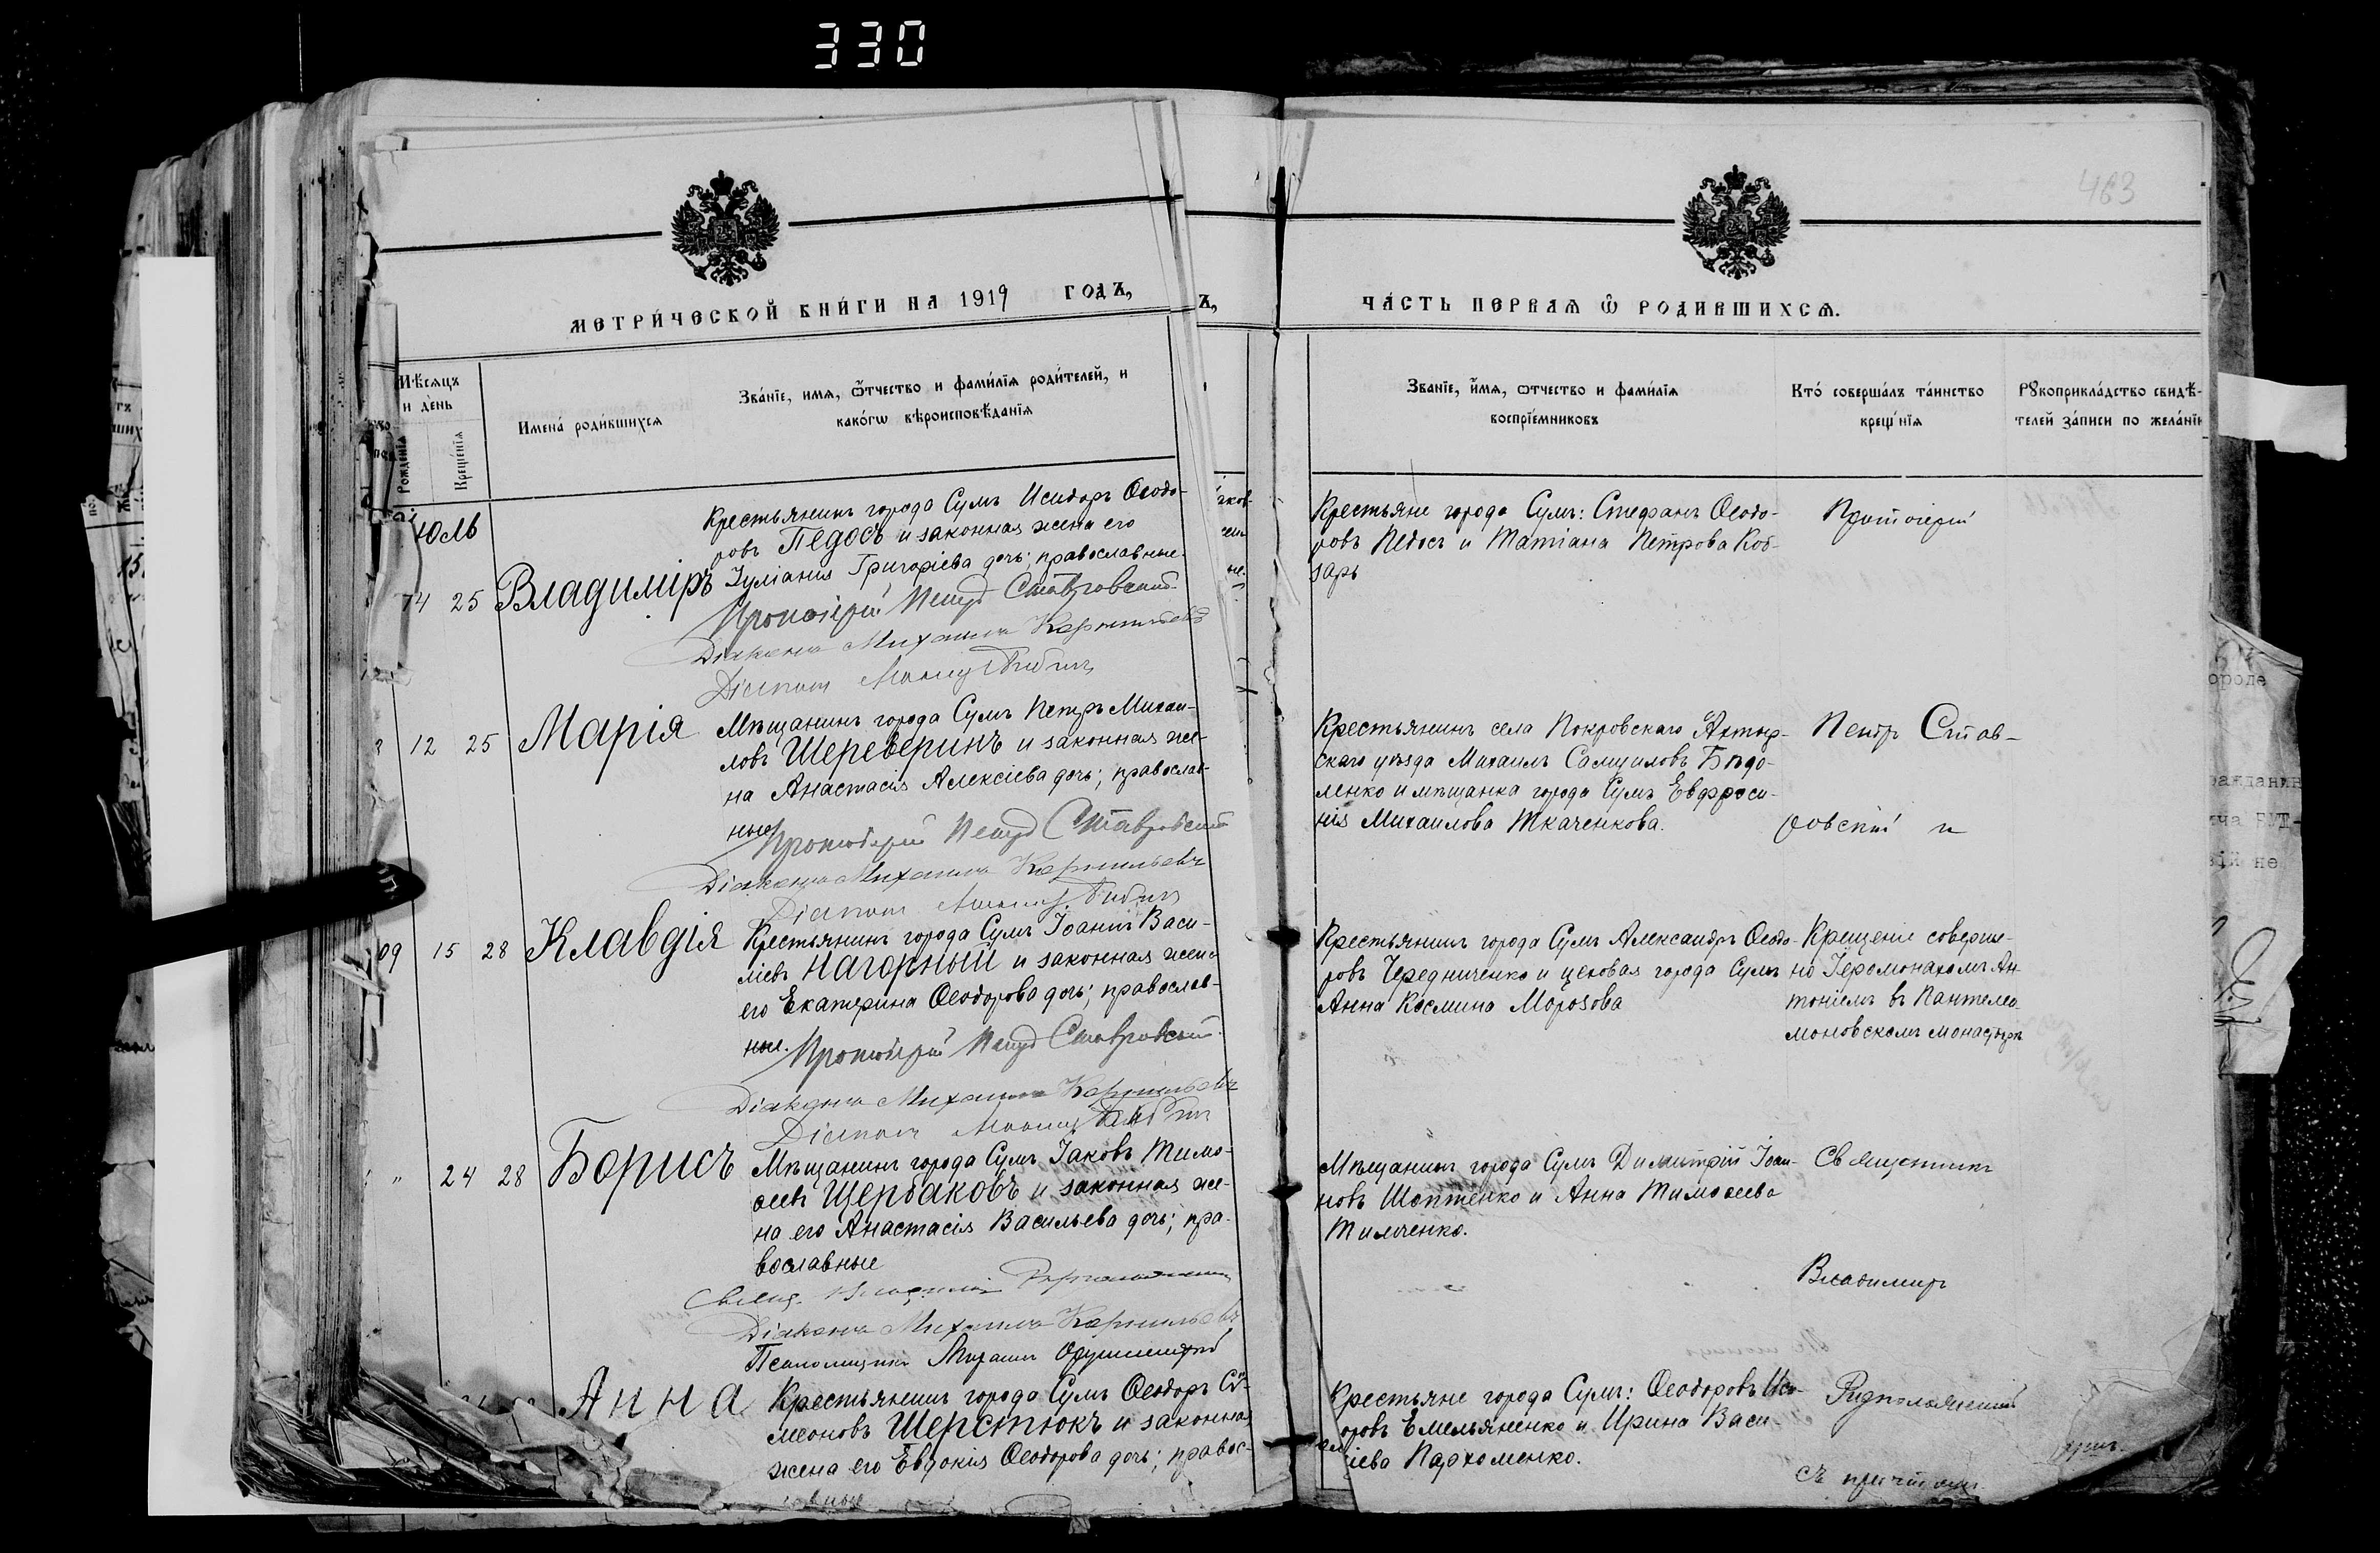 330
463
МЕТРИЧЕСКОЙ КНИГИ НА 1919 ГОДЪ,
Ъ,
ЧАСТЬ ПЕРВАЯ Ѡ РОДИВШИХСѦ.
Мѣсяцъ
и день
Рожденїя
Крещенїя
Имена родившихся
Званїе, имя, ѿтчество и фамилїя родителей, и
какогѡ вѣроисповѣданїя
Званїе, имя, ѡтчество и фамилїя
воспрїемниковъ
Кто совершалъ таинство
крещенїя
Рꙋкоприкладство свидѣ-
телей записи по желанїю
Юль
Крестьянинъ города Сумъ Исидоръ Ѳеодо-
ровъ Педосъ и законная жена его
Іуліанія Григоріева дочь; православные.
14 25 Владиміръ
Протоіерей Петръ Ставровскій
Діаконъ Михаилъ Корнильевъ
Крестьяне города Сумъ: Стефанъ Ѳеодо-
ровъ Педосъ и Татіана Петрова Коб-
зарь
Протоіерей
12 25 Марія
Мѣщанинъ города Сумъ Петръ Михаи-
ловъ Шереверинъ и законная же-
на Анастасія Алексіева дочь; православ-
ные
Протоіерей Петръ Ставровскій
Діаконъ Михаилъ Корнильевъ
Крестьянинъ села Покровскаго Ахтыр-
скаго уѣзда Михаилъ Самуиловъ Бѣдо-
ленко и мѣщанка города Сумъ Евфроси-
нія Михаилова Ткаченкова.
Петръ Став-
ровскій и
09 15 28 Клавдія
Крестьянинъ города Сумъ Іоаннъ Васи-
ліевъ Нагорный и законная жена
его Екатерина Ѳеодорова дочь; православ-
ные.
Протоіерей Петръ Ставровскій
Діаконъ Михаилъ Корнильевъ
Крестьянинъ города Сумъ Александръ Ѳеодо-
ровъ Чередниченко и цеховая города Сумъ
Анна Космина Морозова
Крещеніе соверше-
но Іеромонахомъ Ан-
тоніемъ въ Пантелеи-
моновскомъ монастырѣ
" 24 28 Борисъ
Мѣщанинъ города Сумъ Іаковъ Тимо-
ѳеевъ Щербаковъ и законная же-
на его Анастасія Васильева дочь; пра-
вославные
Свящ.
Діаконъ Михаилъ Корнильевъ
Псаломщикъ Михаилъ
Мѣщанинъ города Сумъ Димитрій Іоан-
новъ Шоптенко и Анна Тимоѳеева
Тимченко.
Священникъ
Владимиръ
Анна
Крестьянинъ города Сумъ Ѳеодоръ Си-
меоновъ Шерстюкъ и законная
жена его Евдокія Ѳеодорова дочь; правос-
лавные
Крестьяне города Сумъ: Ѳеодоровъ Иси-
оровъ Емельяненко и Ирина Васи-
ліева Пархоменко.
съ причтомъ